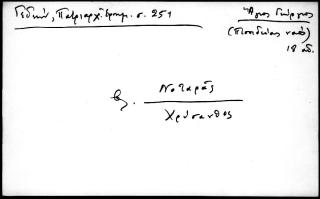 Γεδεών, Πατριαρχ. Εφημ. σ. 251
Άγιος Γεώργιος
(Ποτηρίας ναός)
18 αι.
βλ. Νοταράς
Χρύσανθος